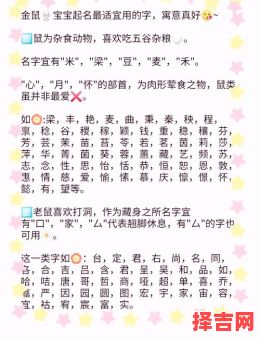 金鼠🐭宝宝起名最适宜用的字，寓意真好😘~
1️⃣鼠为杂食动物，喜欢吃五谷杂粮🍚。
名字宜有"米"，"梁"，"豆"，"麦"，"禾"。
"心"，"月"，"怀"的部首，为肉形荤食之物，鼠类
虽并非最爱❌。
如⭕:梁，丰，艳，麦，曲，秉，秦，秧，程，
禀，稔，谷，稷，稼，颖，钱，重，稳，穰，芬，
芳，芸，茉，苗，菩，苓，若，茗，茵，莉，莎，
萍，华，菁，菌，葵，蓉，蕙，藏，艺，频，苏，
志，念，性，思，怡，恬，恭，恒，恕，恩，敦，
惠，情，慈，爱，愉，愫，慕，庆，懔，憬，怀，
懿，有，望等。
2️⃣老鼠喜欢打洞，作为藏身之所名字宜
有"口"，"家"，"厶"代表翘脚休息，有"厶"的字也
可用
这一类字如⭕：台，定，君，右，尚，名，同，
各，合，吉，吕，含，君，呈，吴，和，品，如，
哈，咕，唐，哥，哲，商，哑，超，单，喜，乔，
嘉，严，因，园，圆，图，宏，宇，家，宙，容，
宜，祜，宥，宸，富，实。
择吉网